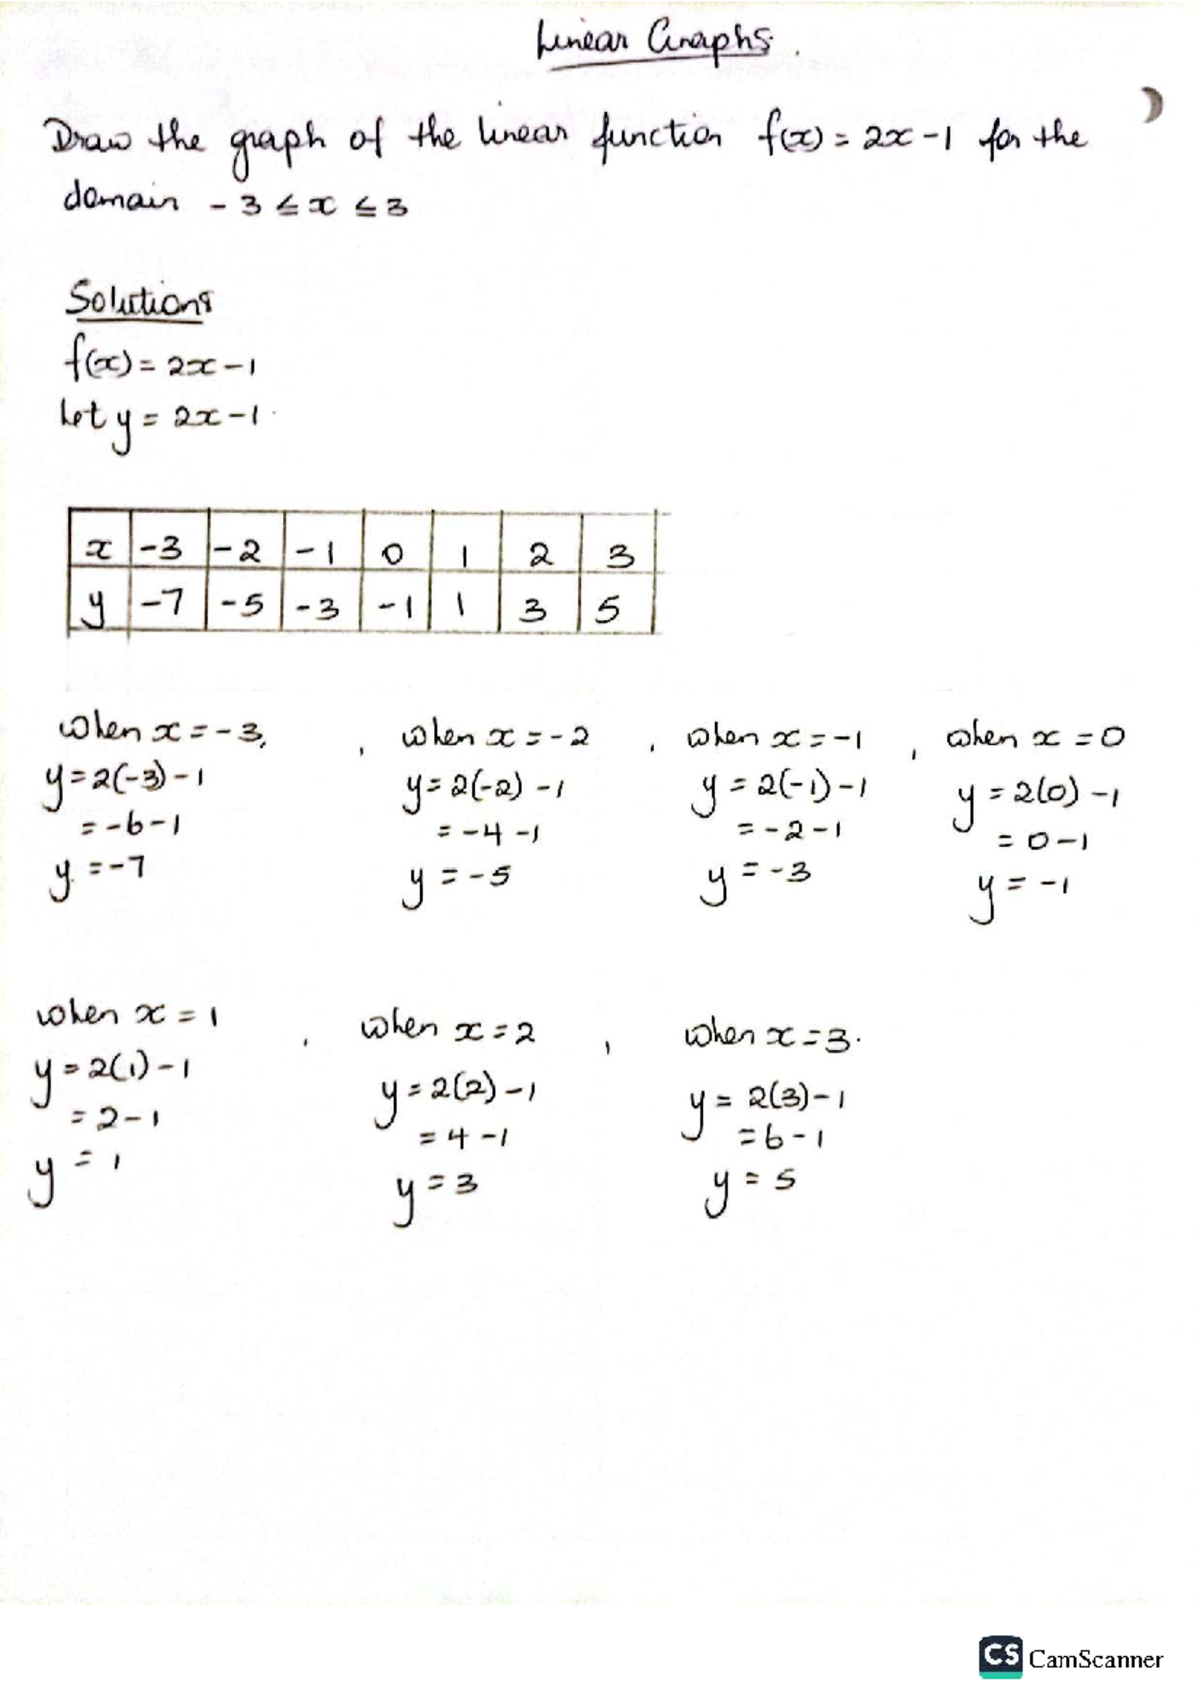 Linear Graphs.
Draw the graph of the linear function f(x) = 2x - 1 for the
domain - 3 ≤ x ≤ 3
Solutions
f(x) = 2x - 1
Let y = 2x - 1.
x -3 -2 -1 0 1 2 3
y -7 -5 -3 -1 1 3 5
when x = -3, , when x = -2 , when x = -1 , when x = 0
y = 2(-3) - 1 y = 2(-2) - 1 y = 2(-1) - 1 y = 2(0) - 1
= -6 - 1 = -4 - 1 = -2 - 1 = 0 - 1
y = -7 y = -5 y = -3 y = -1
when x = 1 , when x = 2 , when x = 3.
y = 2(1) - 1 y = 2(2) - 1 y = 2(3) - 1
= 2 - 1 = 4 - 1 = 6 - 1
y = 1 y = 3 y = 5
CS CamScanner